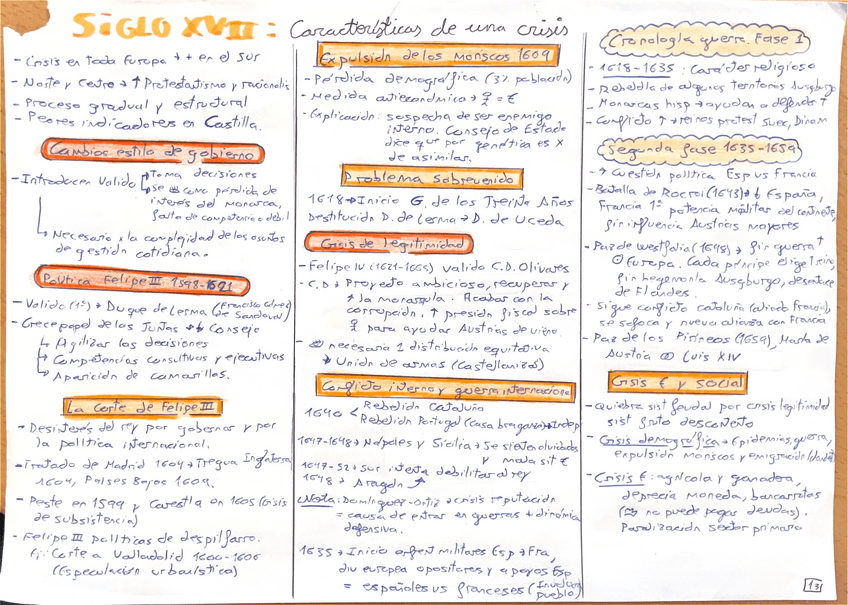 SIGLO XVII: Características de una crisis
- Crisis en toda Europa ++ en el sur
- Norte y Centro → ↑ Protestantismo y racionalis
- Proceso gradual y estructural
- Peores indicadores en Castilla.
Cambios estilo de gobierno
- Introducen Valido → Toma decisiones
→ Se como pérdida de
interés del monarca,
falta de competencia o debil
→ Necesario x la complejidad de los asuntos
de gestión cotidiana.
Política Felipe III 1598-1621
- Valido (1º) → Duque de Lerma (Francisco Gómez
de Sandoval)
- Crece papel de las Juntas → ↓ Consejo
↳ Agilizar las decisiones
↳ Competencias consultivas y ejecutivas
↳ Aparición de camarillas.
La Corte de Felipe III
- Desinterés del rey por gobernar y por
la política internacional.
- Tratado de Madrid 1604 → Tregua Inglaterra
1604, Países Bajos 1609.
- Peste en 1599 y Carestía en 1605 (Crisis
de subsistencia)
- Felipe III políticas de despilfarro.
Ej: Corte a Valladolid 1600-1606
(Especulación urbanística)
Expulsión de los moriscos 1609
- Pérdida demográfica (3% población)
- Medida antieconómica →
- Explicación: sospecha de ser enemigo
interno. Consejo de Estado
dice que por genética es X
de asimilar.
Problema Sobrevenido
1618 → Inicio G. de los Treinta Años
Destitución D. de Lerma → D. de Uceda
Crisis de legitimidad
- Felipe IV (1621-1665) valido C.D. Olivares
- C.D → Proyecto ambicioso, recuperar y
↑ la monarquía. Acabar con la
corrupción. ↑ presión fiscal sobre
para ayudar Austrias de Viena.
- necesaria 1 distribución equitativa
→ Unión de armas (Castellanizas)
Conflicto interno y guerra internacional
1640 < Rebelión Cataluña
Rebelión Portugal (Casa braganza) → Indep
1647-1648 → Nápoles y Sicilia → Se sienten olvidados
y mala sit €
1647-52 → Sur intenta debilitar al rey
1648 → Aragón
Nota: Domínguez-Ortiz → crisis reputación
= causa de entrar en guerras + dinámica
defensiva.
1635 → Inicio enfrent militares Esp → Fra,
div europea opositores y apoyos Esp
= españoles vs franceses (Involucra
pueblo)
Cronología guerra. Fase 1
- 1618-1635: Carácter religioso
- Rebeldía de algunos territorios Ausgburgo
- Monarcas hisp → ayudan a defender ↑
- Conflicto ↑ → reinos protest Suec, Dinam
Segunda fase 1635-1659
- ↑ Cuestión política Esp vs Francia
- Batalla de Rocroi (1643) → ↓ España,
Francia 1º potencia militar del continente,
fin influencia Austrias mayores
- Paz de Westfalia (1648) → fin guerra ↑
Europa. Cada príncipe elige religión,
fin hegemonía Ausgburgo, desenlace
de Flandes.
- Sigue conflicto Cataluña (aliada Francia),
se sofoca y nueva alianza con Francia
- Paz de los Pirineos (1659), Marta de
Austria Luis XIV
Crisis € y social
- Quiebra sist feudal por crisis legitimidad
sist fruto descontento
- Crisis demográfica → Epidemias, guerra,
expulsión moriscos y emigración
- Crisis €: agrícola y ganadera,
deprecia moneda, bancarrotas
(no puede pagar deudas).
Paralización sector primario
13